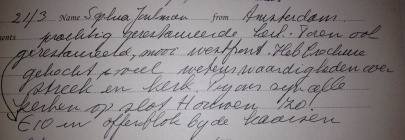 21/3 Name Sophia from Amsterdam
ments prachtig gerestaureerde kerk. Toren ook
gerestaureerd, mooi westfront. Heb brochure
gekocht + veel wetenswaardigheden over
streek en kerk. Tegour zijn alle
kerken op slot. Houwen zo!
€10 in offerblok bij de kaarsen